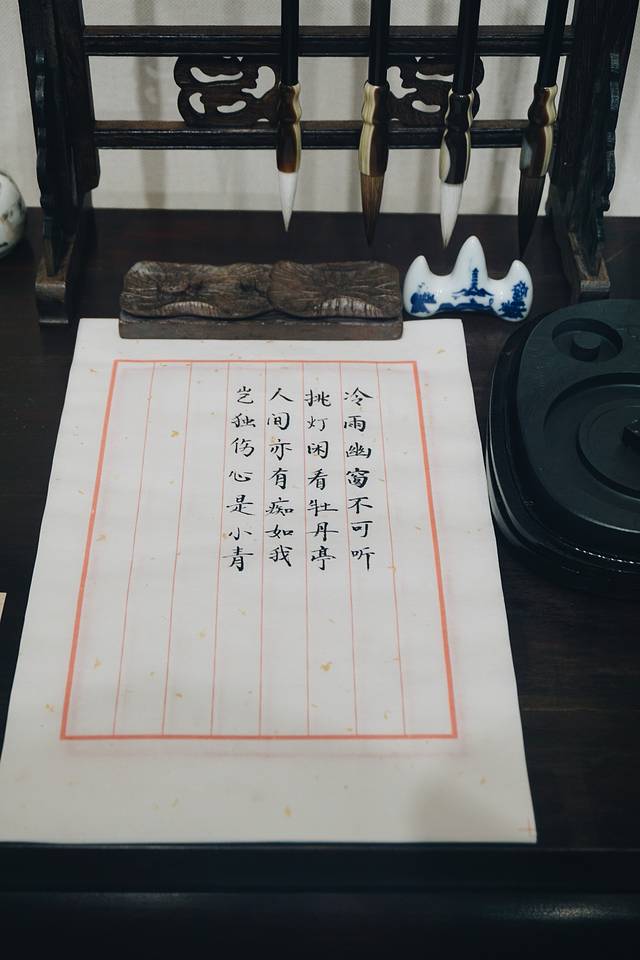 冷雨幽窗不可听
挑灯闲看牡丹亭
人间亦有痴如我
岂独伤心是小青